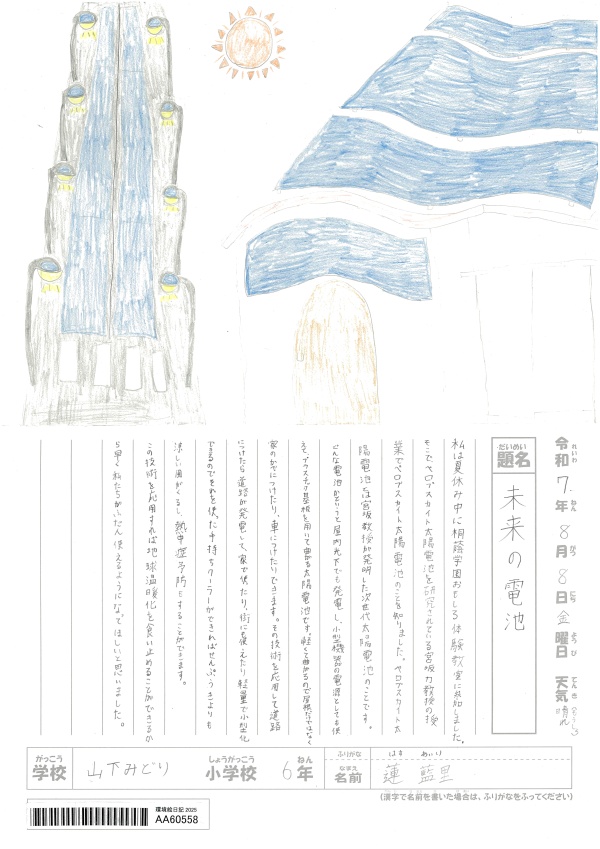 令和7年8月8日金曜日 天気 晴れ
れいわ ねん がつ にち ようび てんき
だいめい
題名 未来の電池
私は夏休み中に桐蔭学園おもしろ体験教室に参加しました。
そこでペロブスカイト太陽電池を研究されている宮坂力教授の授
業でペロブスカイト太陽電池のことを知りました。ペロブスカイト太
陽電池は宮坂教授が発明した次世代太陽電池のことです。
どんな電池かというと屋内光下でも発電し、小型機器の電源としても使
えて、プラスチック基板を用いて曲がる太陽電池です。軽くて曲がるので屋根だけではなく
家のかべにつけたり、車につけたりできます。その技術を応用して道路
につけたら道路が発電して、家で使えたり、街にも使えたり軽量で小型化
できるのでそれを使った手持ちクーラーができればせんぷうきよりも
涼しい風がくるし、熱中症予防をすることができます。
この技術を応用すれば地球温暖化を食い止めることができるか
ら早く私たちがふだん使えるようになってほしいと思いました。
がっこう
学校 山下みどり
しょうがっこう
小学校 6年
ねん
ふりがな はす あいり
なまえ
名前 蓮 藍里
(漢字で名前を書いた場合は、ふりがなをふってください)
環境絵日記 2025
AA60558